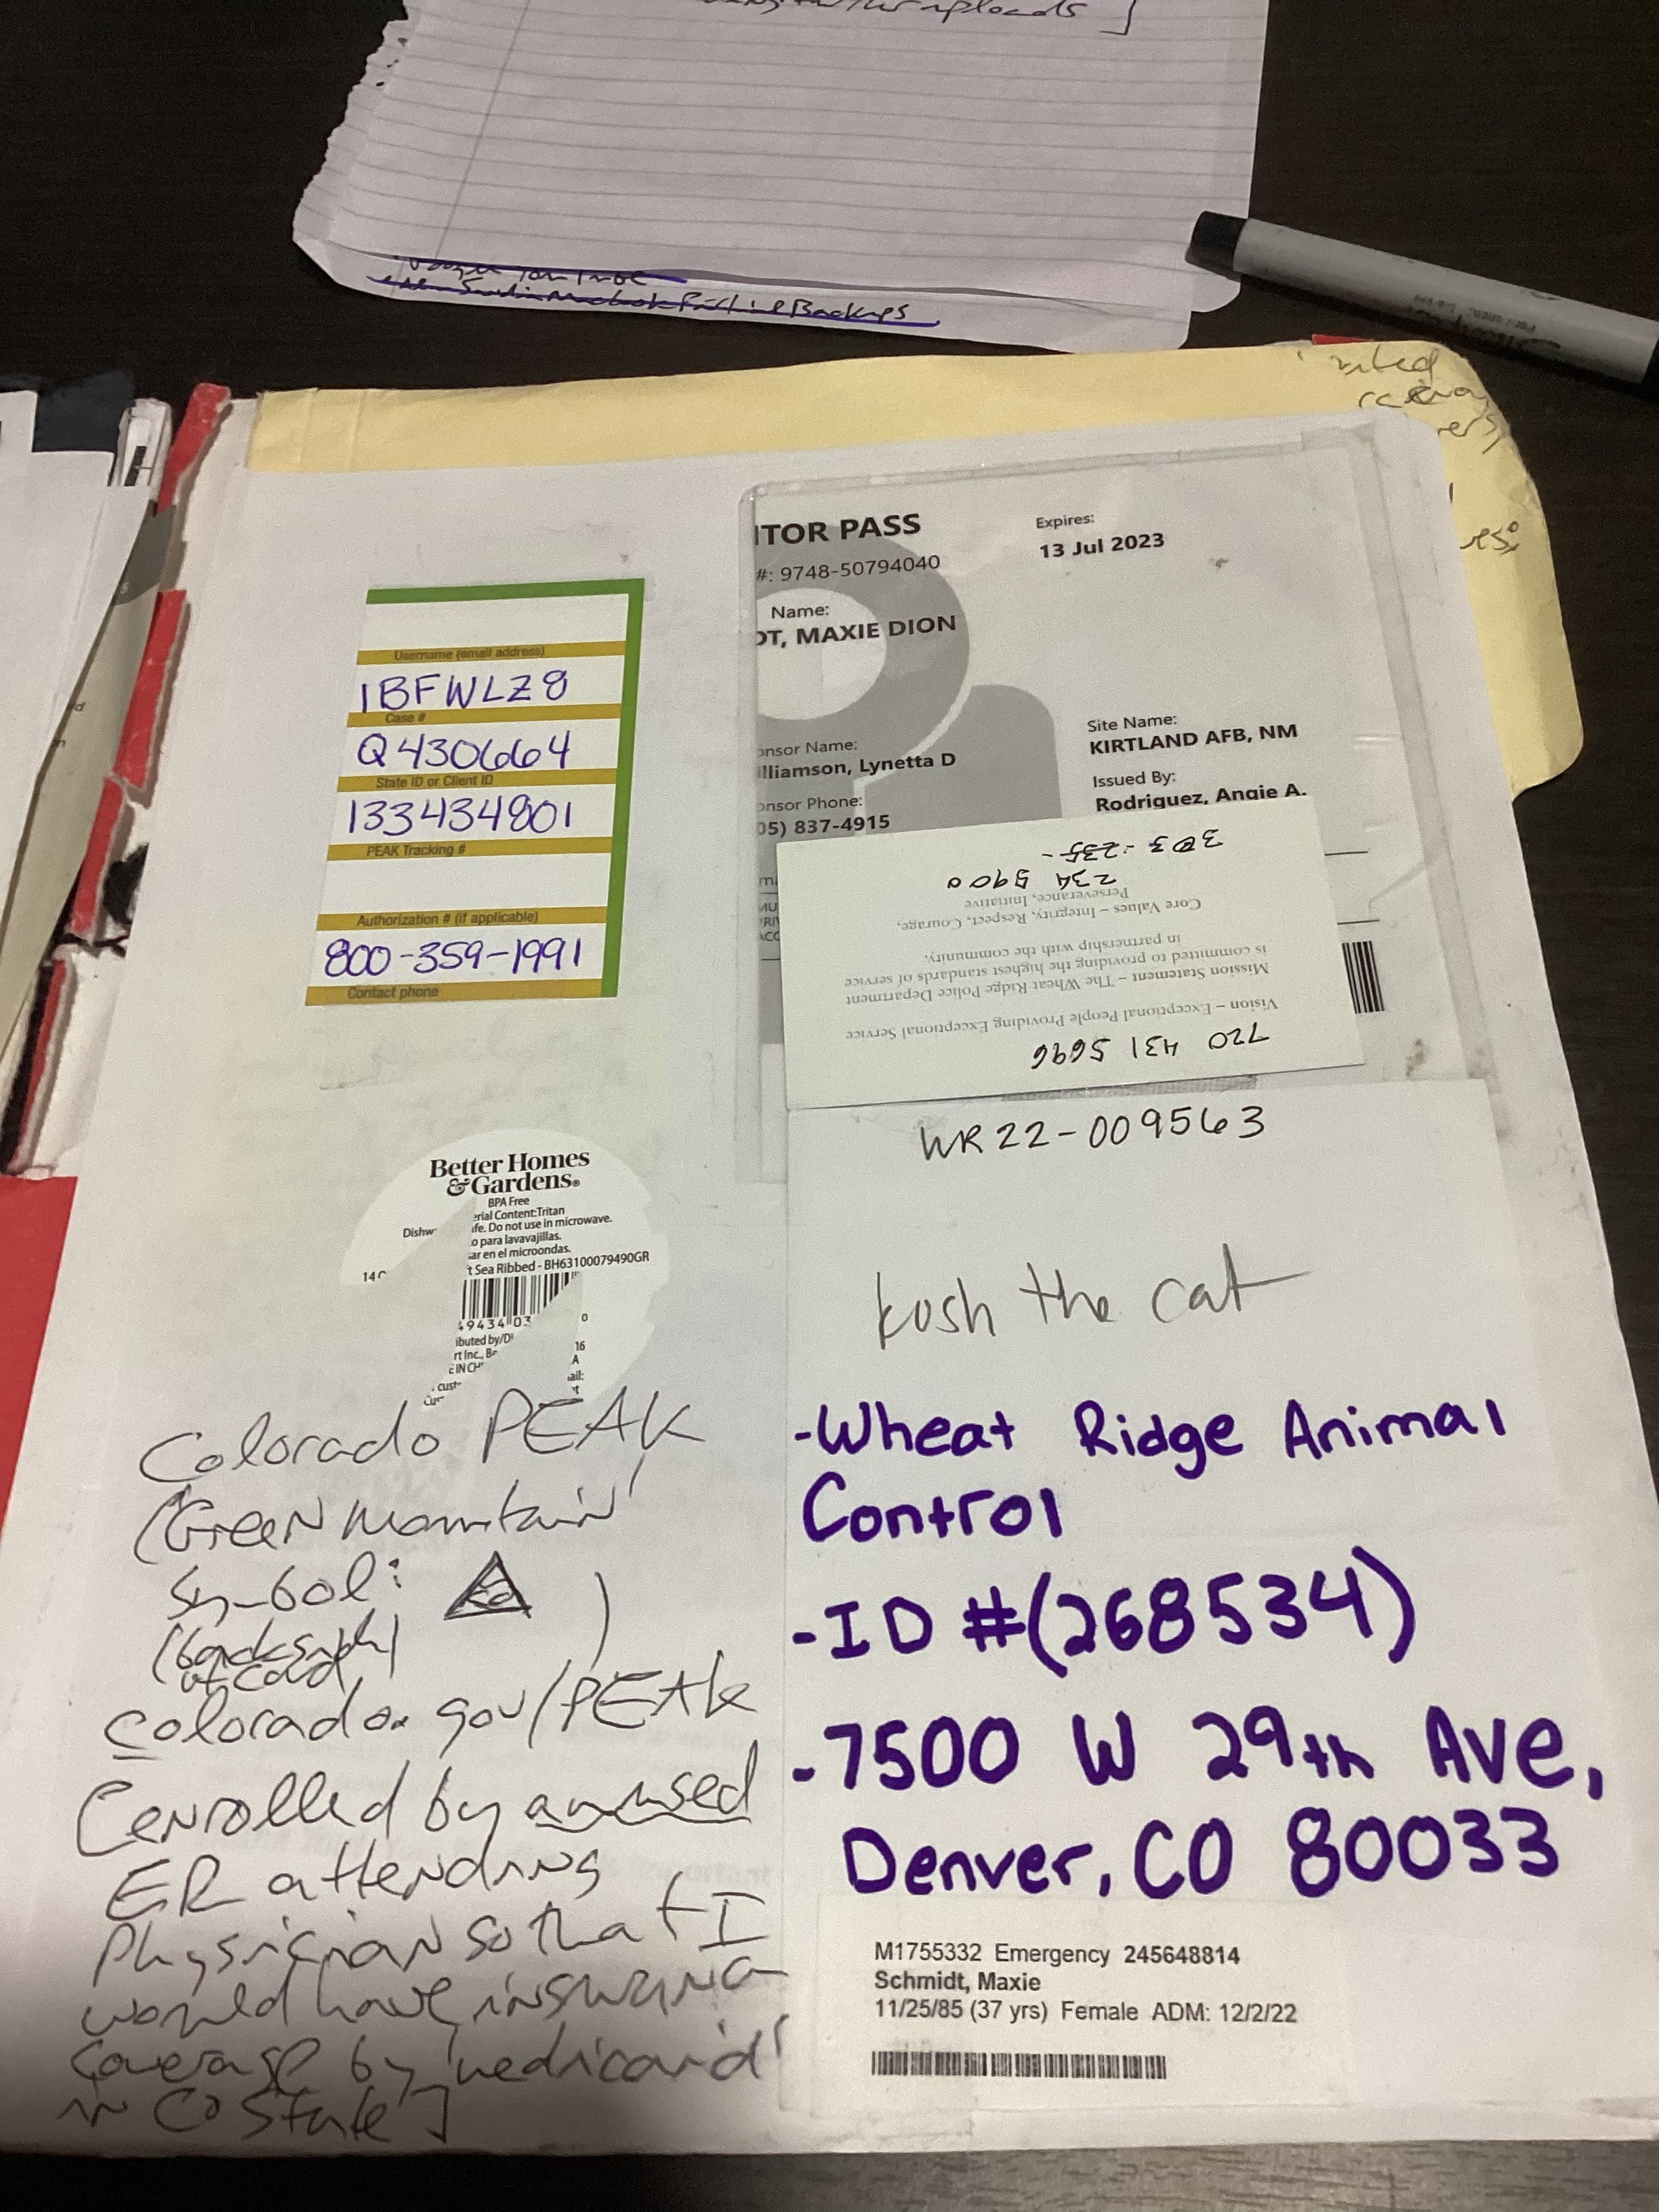 uploads]
Backups
Username (email address)
1BFWLZ8
Case #
Q430664
State ID or Client ID
133434801
PEAK Tracking #
Authorization # (if applicable)
800-359-1991
Contact phone
ITOR PASS
#: 9748-50794040
Name:
DT, MAXIE DION
Expires:
13 Jul 2023
onsor Name:
illiamson, Lynetta D
onsor Phone:
05) 837-4915
Site Name:
KIRTLAND AFB, NM
Issued By:
Rodriguez, Angie A.
720 431 5696
Vision – Exceptional People Providing Exceptional Service
Mission Statement – The Wheat Ridge Police Department
is committed to providing the highest standards of service
in partnership with the community.
Core Values – Integrity, Respect, Courage,
Perseverance, Initiative
234 5900
303 - 235-
WR22-009563
Kosh the cat
-Wheat Ridge Animal
Control
-ID #(268534)
-7500 W 29th Ave,
Denver, CO 80033
M1755332 Emergency 245648814
Schmidt, Maxie
11/25/85 (37 yrs) Female ADM: 12/2/22
Better Homes
& Gardens®
BPA Free
erial Content:Tritan
Dishw fe. Do not use in microwave.
o para lavavajillas.
ar en el microondas.
t Sea Ribbed - BH63100079490GR
49434 03
ibuted by/D
rt Inc., Be
E IN CH
Colorado PEAK
(Green Mountain
Symbol:
of card
Colorado.gov/PEAK
[enrolled by amused
ER attending
Physician so that I
would have insurance
coverage by 'medicaid'
in CO State]